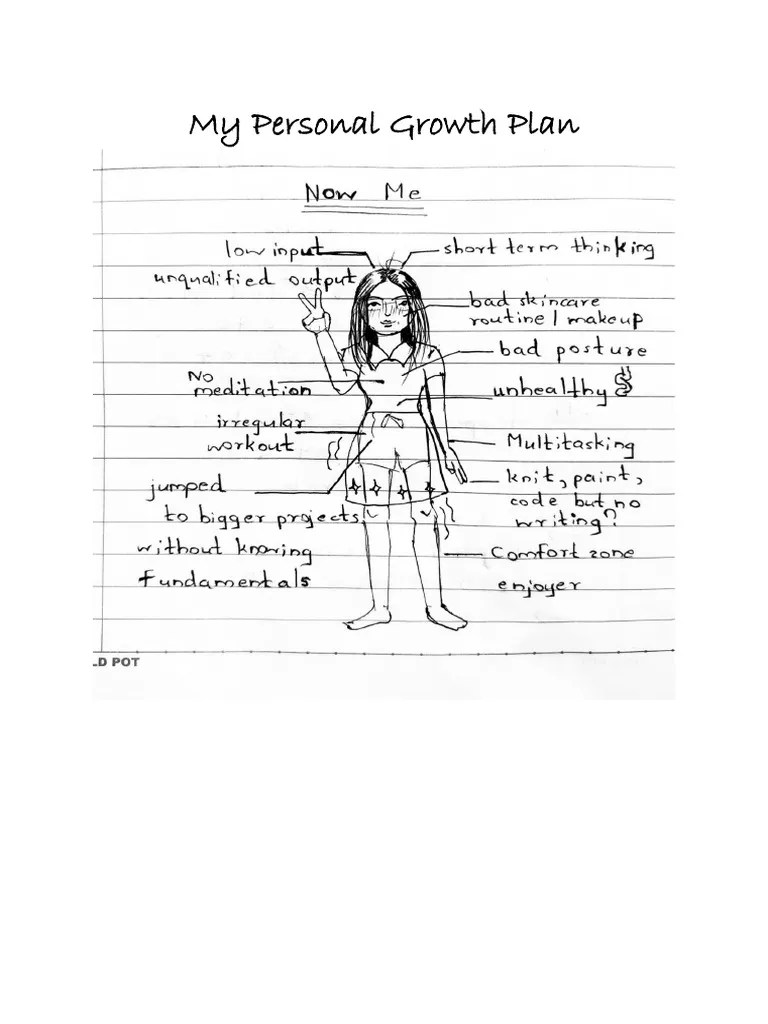 My Personal Growth Plan
Now Me
low input
short term thinking
unqualified output
bad skincare
routine / makeup
bad posture
No
meditation
unhealthy
irregular
workout
Multitasking
jumped
to bigger projects
without knowing
fundamentals
knit, paint,
code but no
writing?
Comfort zone
enjoyer
LD POT